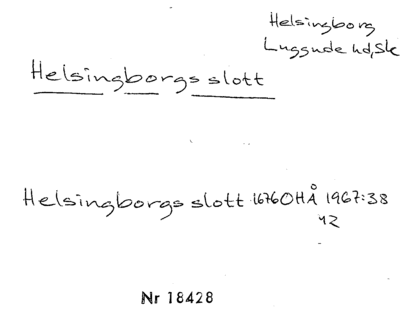 Helsingborg
Luggude hd, Sk
Helsingborgs slott
Helsingborgs slott 1676 OHÅ 1967:38
42
Nr 18428